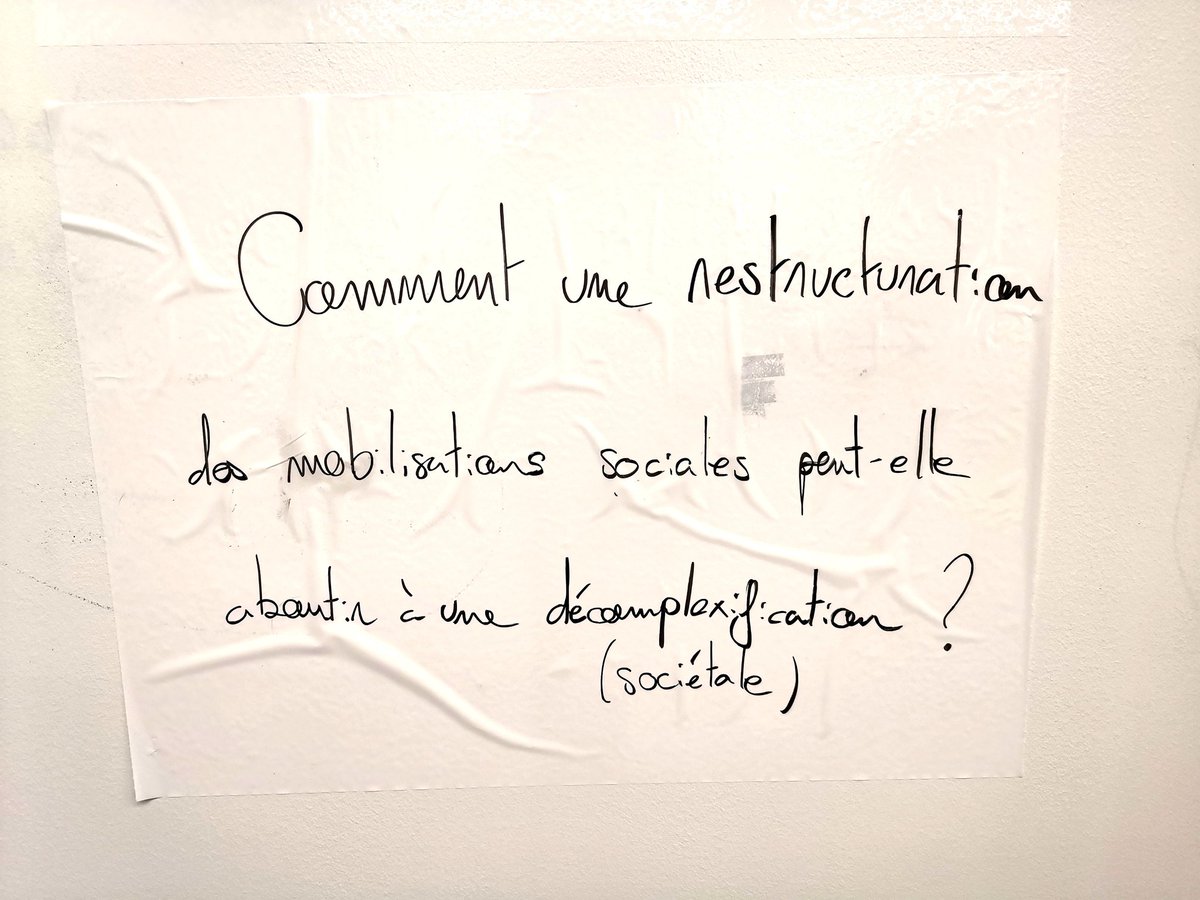 Comment une restructuration
des mobilisations sociales peut-elle
aboutir à une décomplexification ?
(sociétale)